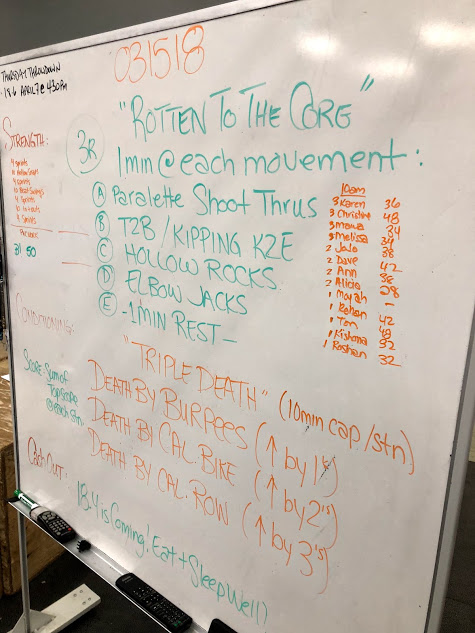 031518
THURSDAY THROWDOWN
18.6 APRIL 7 @ 430PM
STRENGTH:
3R
"ROTTEN TO THE CORE"
1 min @ each movement:
A Paralette Shoot Thrus
B T2B / KIPPING K2E
C HOLLOW ROCKS
D ELBOW JACKS
E -1 MIN REST-
10am
3 Karen 36
3 Christine 48
34
3 Melissa 34
2 JoJo 38
2 Dave 42
2 Ann 38
2 Alicia 28
1 -
1 Rohan 42
1 Tom 48
1 Kishana 32
1 Roshan 32
CONDITIONING:
"TRIPLE DEATH" (10min cap/stn)
SCORE: Sum of
Top Score
@ each stn.
DEATH BY BURPEES (↑ by 1's)
DEATH BY CAL. BIKE (↑ by 2's)
DEATH BY CAL. ROW (↑ by 3's)
Cash Out:
18.4 is Coming! Eat + Sleep Well)